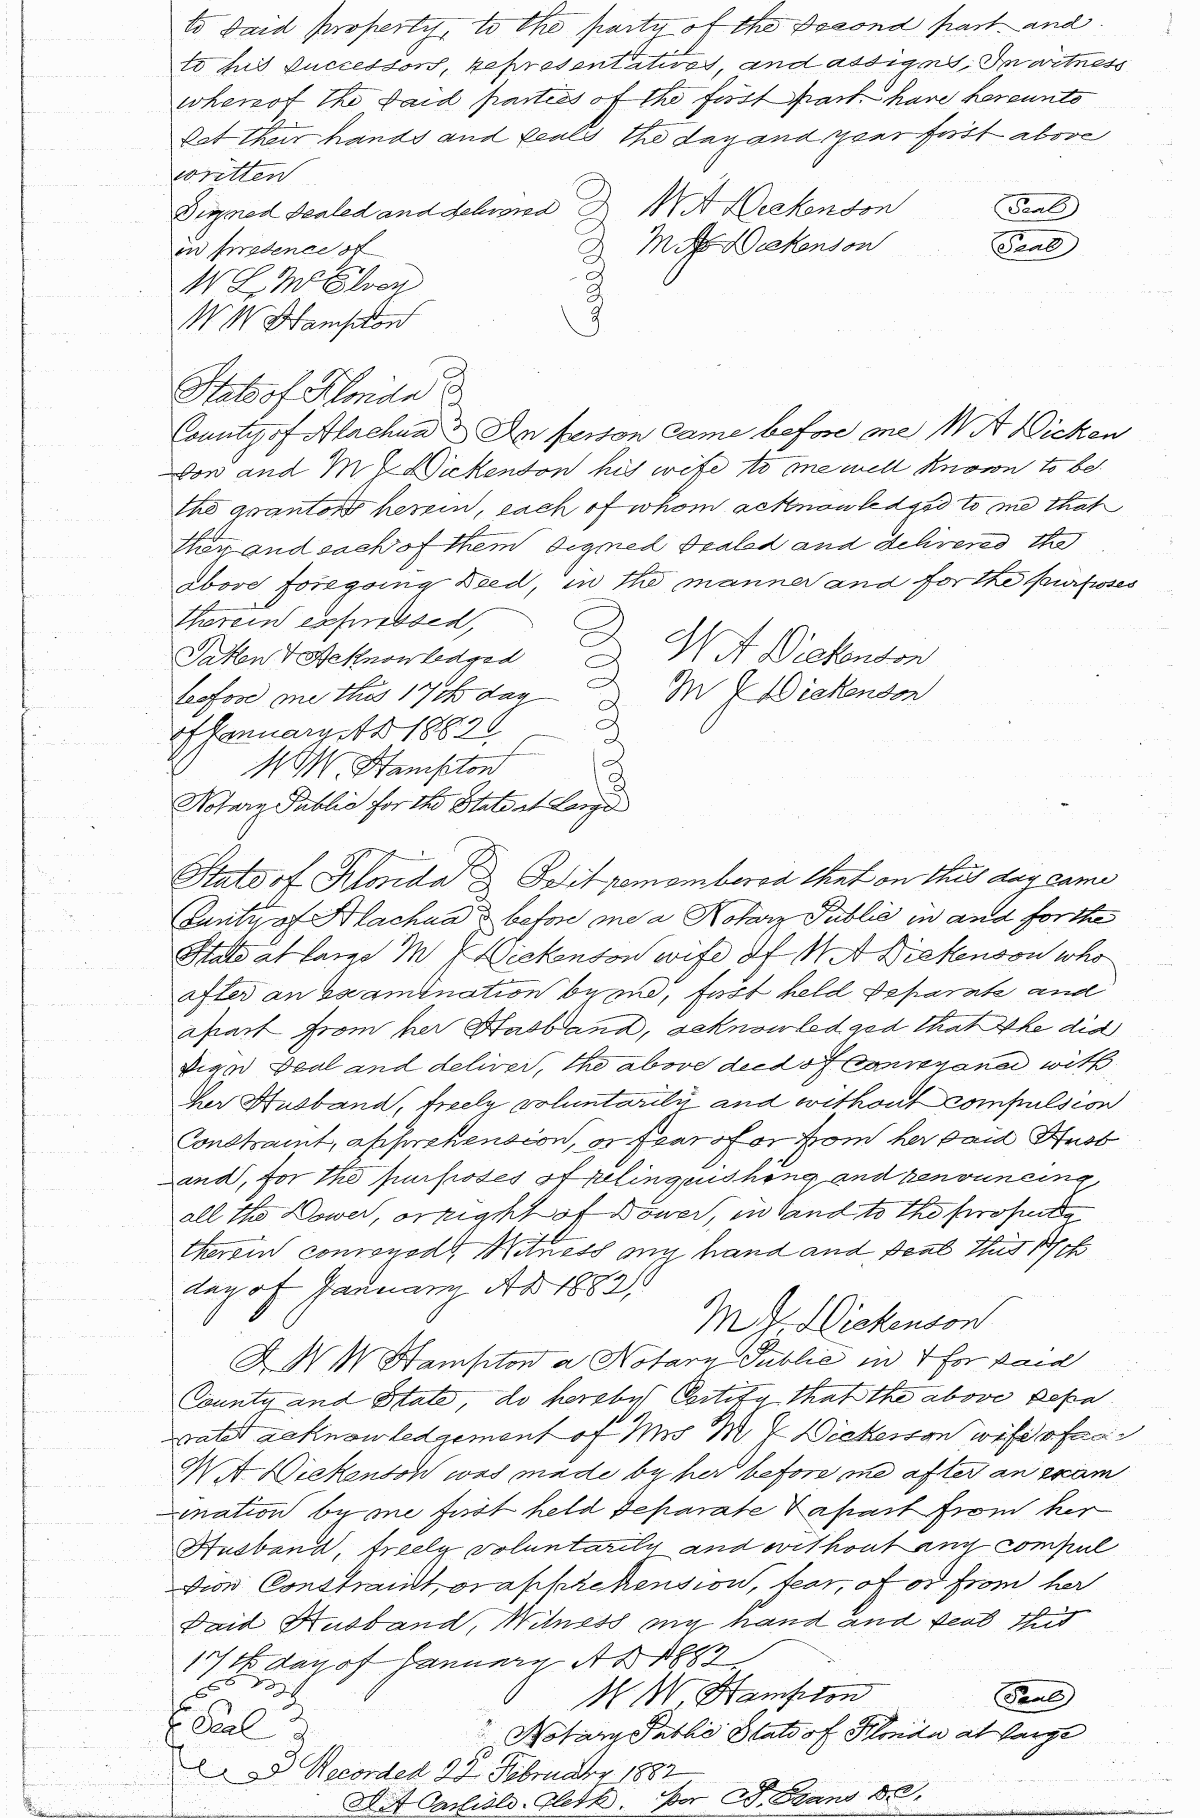 to said property, to the party of the second part. and
to his successors, representatives, and assigns, In witness
whereof the said parties of the first part. have hereunto
set their hands and seals the day and year first above
written
Signed sealed and delivered W A Dickenson Seal
in presence of M J Dickenson Seal
W L McElvey
W W Hampton
State of Florida
County of Alachua In person came before me W A Dicken
son and M J Dickenson his wife to me well known to be
the grantors herein, each of whom acknowledged to me that
they and each of them signed sealed and delivered the
above foregoing Deed, in the manner and for the purposes
therein expressed,
Taken & Acknowledged W A Dickenson
before me this 17th day M J Dickenson
of January A D 1882,
W W. Hampton
Notary Public for the State at Large
State of Florida Be it remembered that on this day came
County of Alachua before me a Notary Public in and for the
State at large M J Dickenson wife of W A Dickenson who
after an examination by me, first held separate and
apart from her Husband, acknowledged that she did
sign seal and deliver, the above deed of conveyance with
her Husband, freely voluntarily and without compulsion
Constraint, apprehension, or fear of or from her said Husb
and, for the purposes of relinquishing and renouncing
all the Dower, or right of Dower, in and to the property
therein conveyed, Witness my hand and seal this 17th
day of January A D 1882,
M J. Dickenson
I W W Hampton a Notary Public in & for said
County and State, do hereby Certify that the above sepa
rate acknowledgement of Mrs M J Dickerson wife of
W A Dickenson was made by her before me after an exam
ination by me first held separate & apart from her
Husband, freely voluntarily and without any compul
sion Constraint, or apprehension, fear, of or from her
said Husband, Witness my hand and seal this
17th day of January A D 1882
W W. Hampton Seal
Seal Notary Public State of Florida at large
Recorded 22 February 1882
J A Carlisle. Clerk. per Evans D.C.